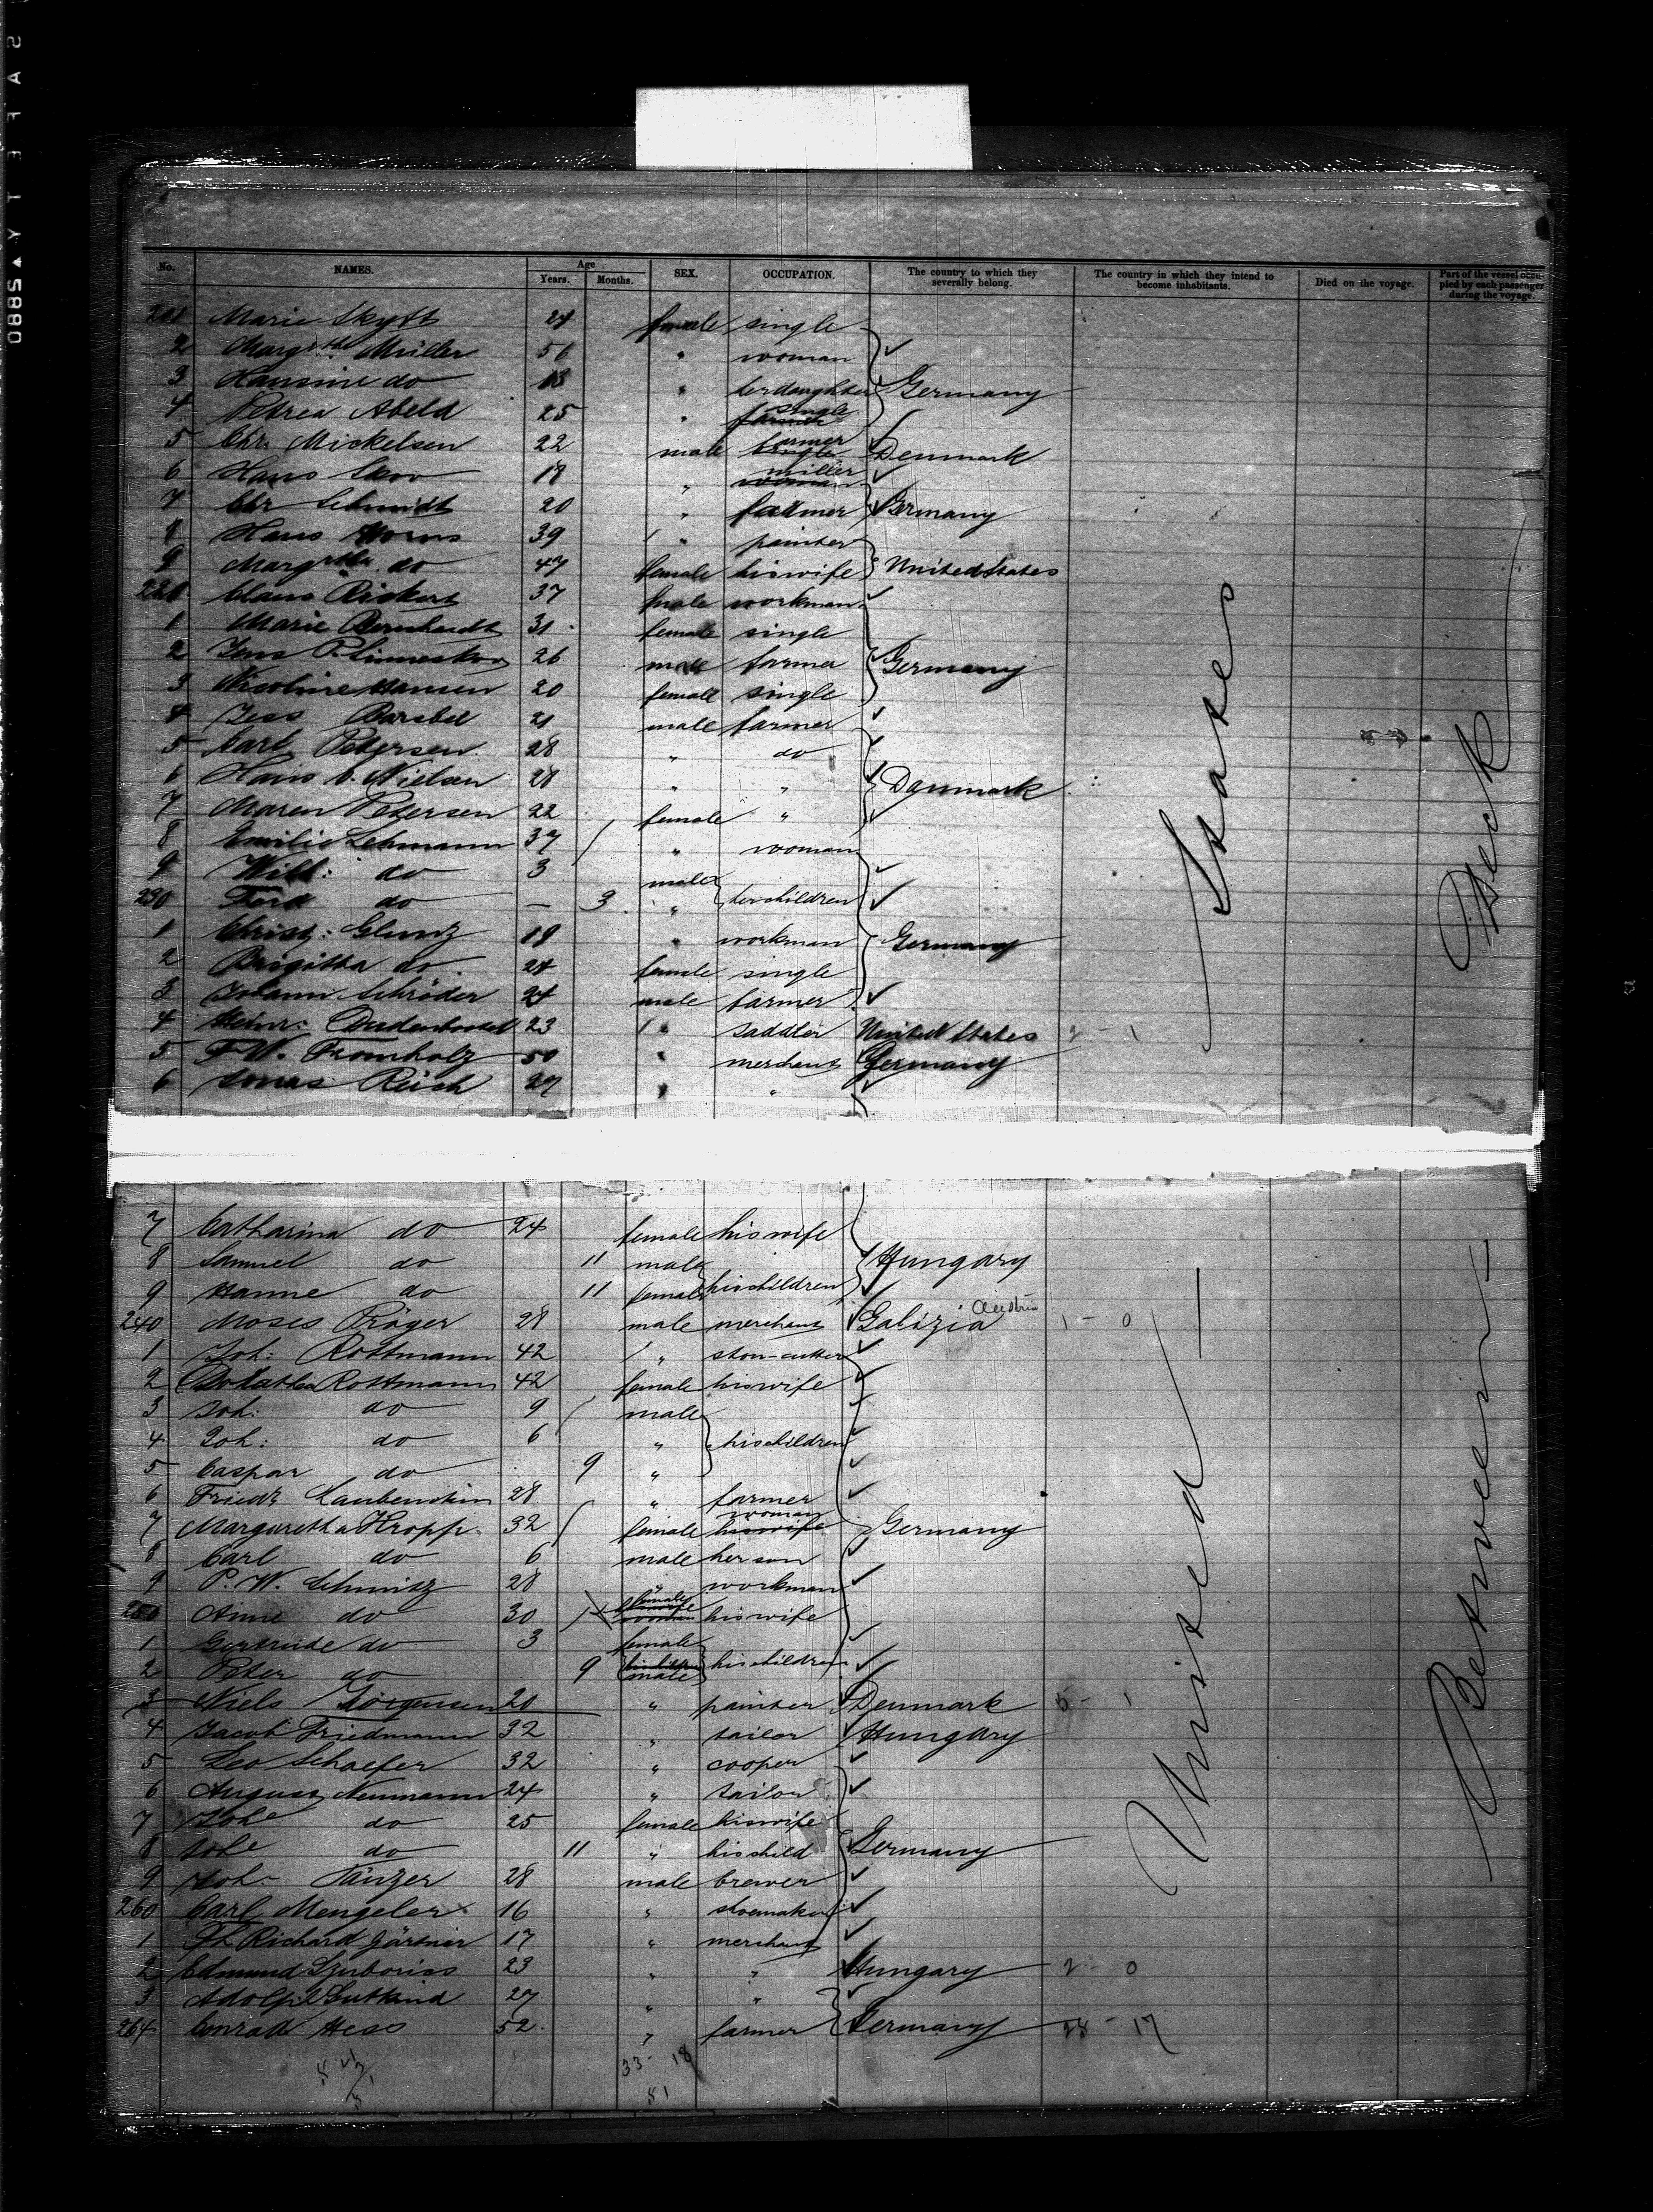 No. NAMES. Age Years. Months. SEX. OCCUPATION. The country to which they severally belong. The country in which they intend to become inhabitants. Died on the voyage. Part of the vessel occupied by each passenger during the voyage.
211 Marie Skytt 24 female single
2 Margrtha Müller 56 " woman
3 Hansine do 13 " her daughter Germany
4 Petrea Abeld 25 " single
5 Chr. Mickelsen 22 male farmer Denmark
6 Hans Skov 19 " miller
7 Chr Schmidt 20 " farmer Germany
8 Hans 39 " painter
9 Margrtha do 47 female his wife United States
220 Claus Rickert 37 male workman
1 Marie Bernhardt 31 female single
2 Jens P. 26 male farmer Germany
3 Nicoline Hansen 20 female single
4 Jess 21 male farmer
5 Carl Petersen 28 " do
6 Hans C. Nielsen 28 " " Danmark
7 Maren Petersen 22 female "
8 Emilie Lehmann 37 " woman
9 Wilh: do 3 male her children
230 Ferd do — 3 "
1 Christ: Glunz 19 " workman Germany
2 Brigitha do 24 female single
3 Johann Schröder 24 male farmer
4 Heinr: 23 " saddler United States 2 - 1
5 F. W. Fromholz 50 " merchant Germany
6 Jonas Reich 27 " "
7 Catharina do 24 female his wife
8 Samuel do 11 male his children Hungary
9 Hanne do 11 female
240 Moses Präger 28 male merchant Galizia Austria 1 - 0
1 Joh: Rottmann 42 " ston-cutter
2 Dorathea Rottmann 42 female his wife
3 Joh: do 9 male
4 Joh: do 6 " his children
5 Caspar do 9 "
6 Friedr Laubenstein 28 " farmer
7 Margaretha Kropp 32 female woman Germany
8 Carl do 6 male her son
9 P. W. Schmitz 28 " workman
250 Anne do 30 female his wife
1 Gertrude do 3 female
2 Peter do 9 male his children
3 Niels Jörgensen 20 " painter Denmark 5 - 1
4 Jacob Friedmann 32 " tailor Hungary
5 Leo Schaefer 32 " cooper
6 August Neumann 24 " tailor
7 Johe do 25 female his wife
8 Johe do 11 " his child Germany
9 Joh- Tänzer 28 male brewer
260 Carl Mengeler 16 " shoemaker
1 Richard Gärtner 17 " merchant
2 Edmund 23 " " Hungary 2 0
3 Adolph Gutkind 27 " "
264 Conrad Hess 52 " farmer Germany 28 - 17
33 - 18
51
United States
Between Deck
SAFETY 5880